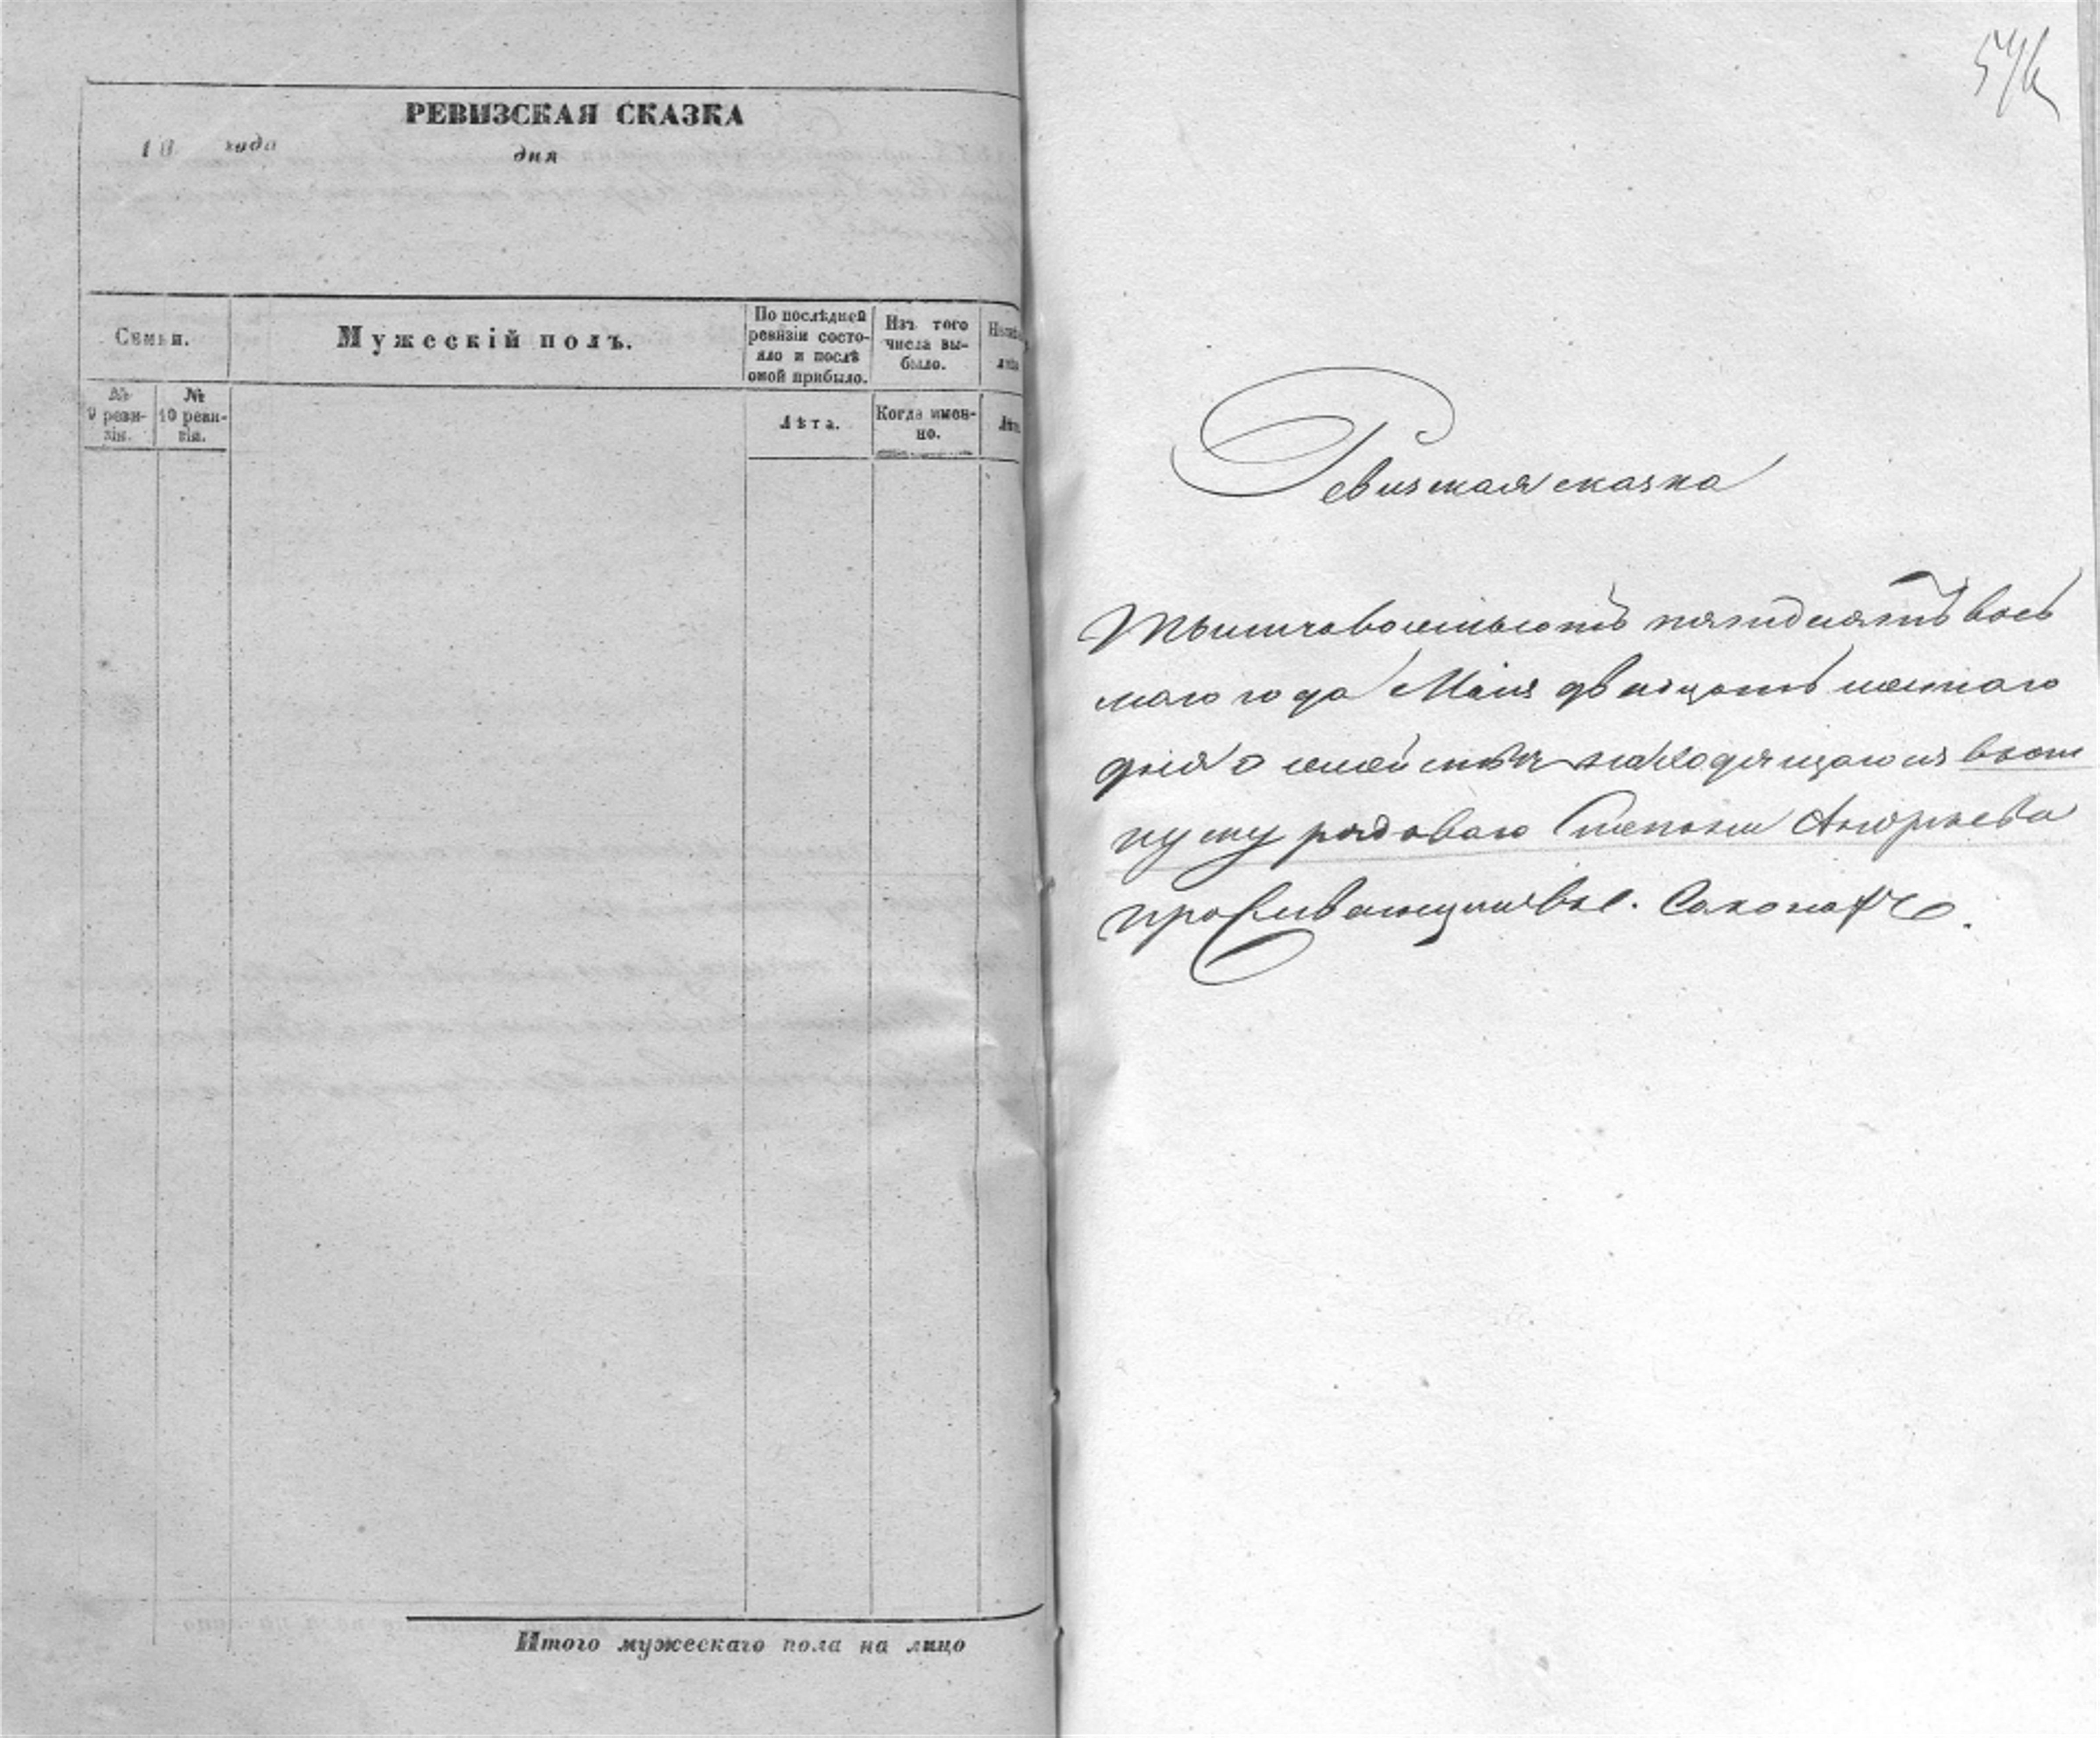 РЕВИЗСКАЯ СКАЗКА
18 года дня
Семьи.
Мужескій полъ.
По послѣдней ревизіи состояло и послѣ оной прибыло.
Изъ того числа вы-было.
№ 9 реви-зіи.
№ 10 реви-зіи.
Лѣта.
Когда имен-но.
Лѣта
Итого мужескаго пола на лицо
Ревизская сказка
Тысяча восемьсотъ пятидесятъ вось
маго года Маія двадцать шестаго
дня о семействѣ находящагося въ от
пуску рядоваго Степана Андрьева
проживающимъ въ с.